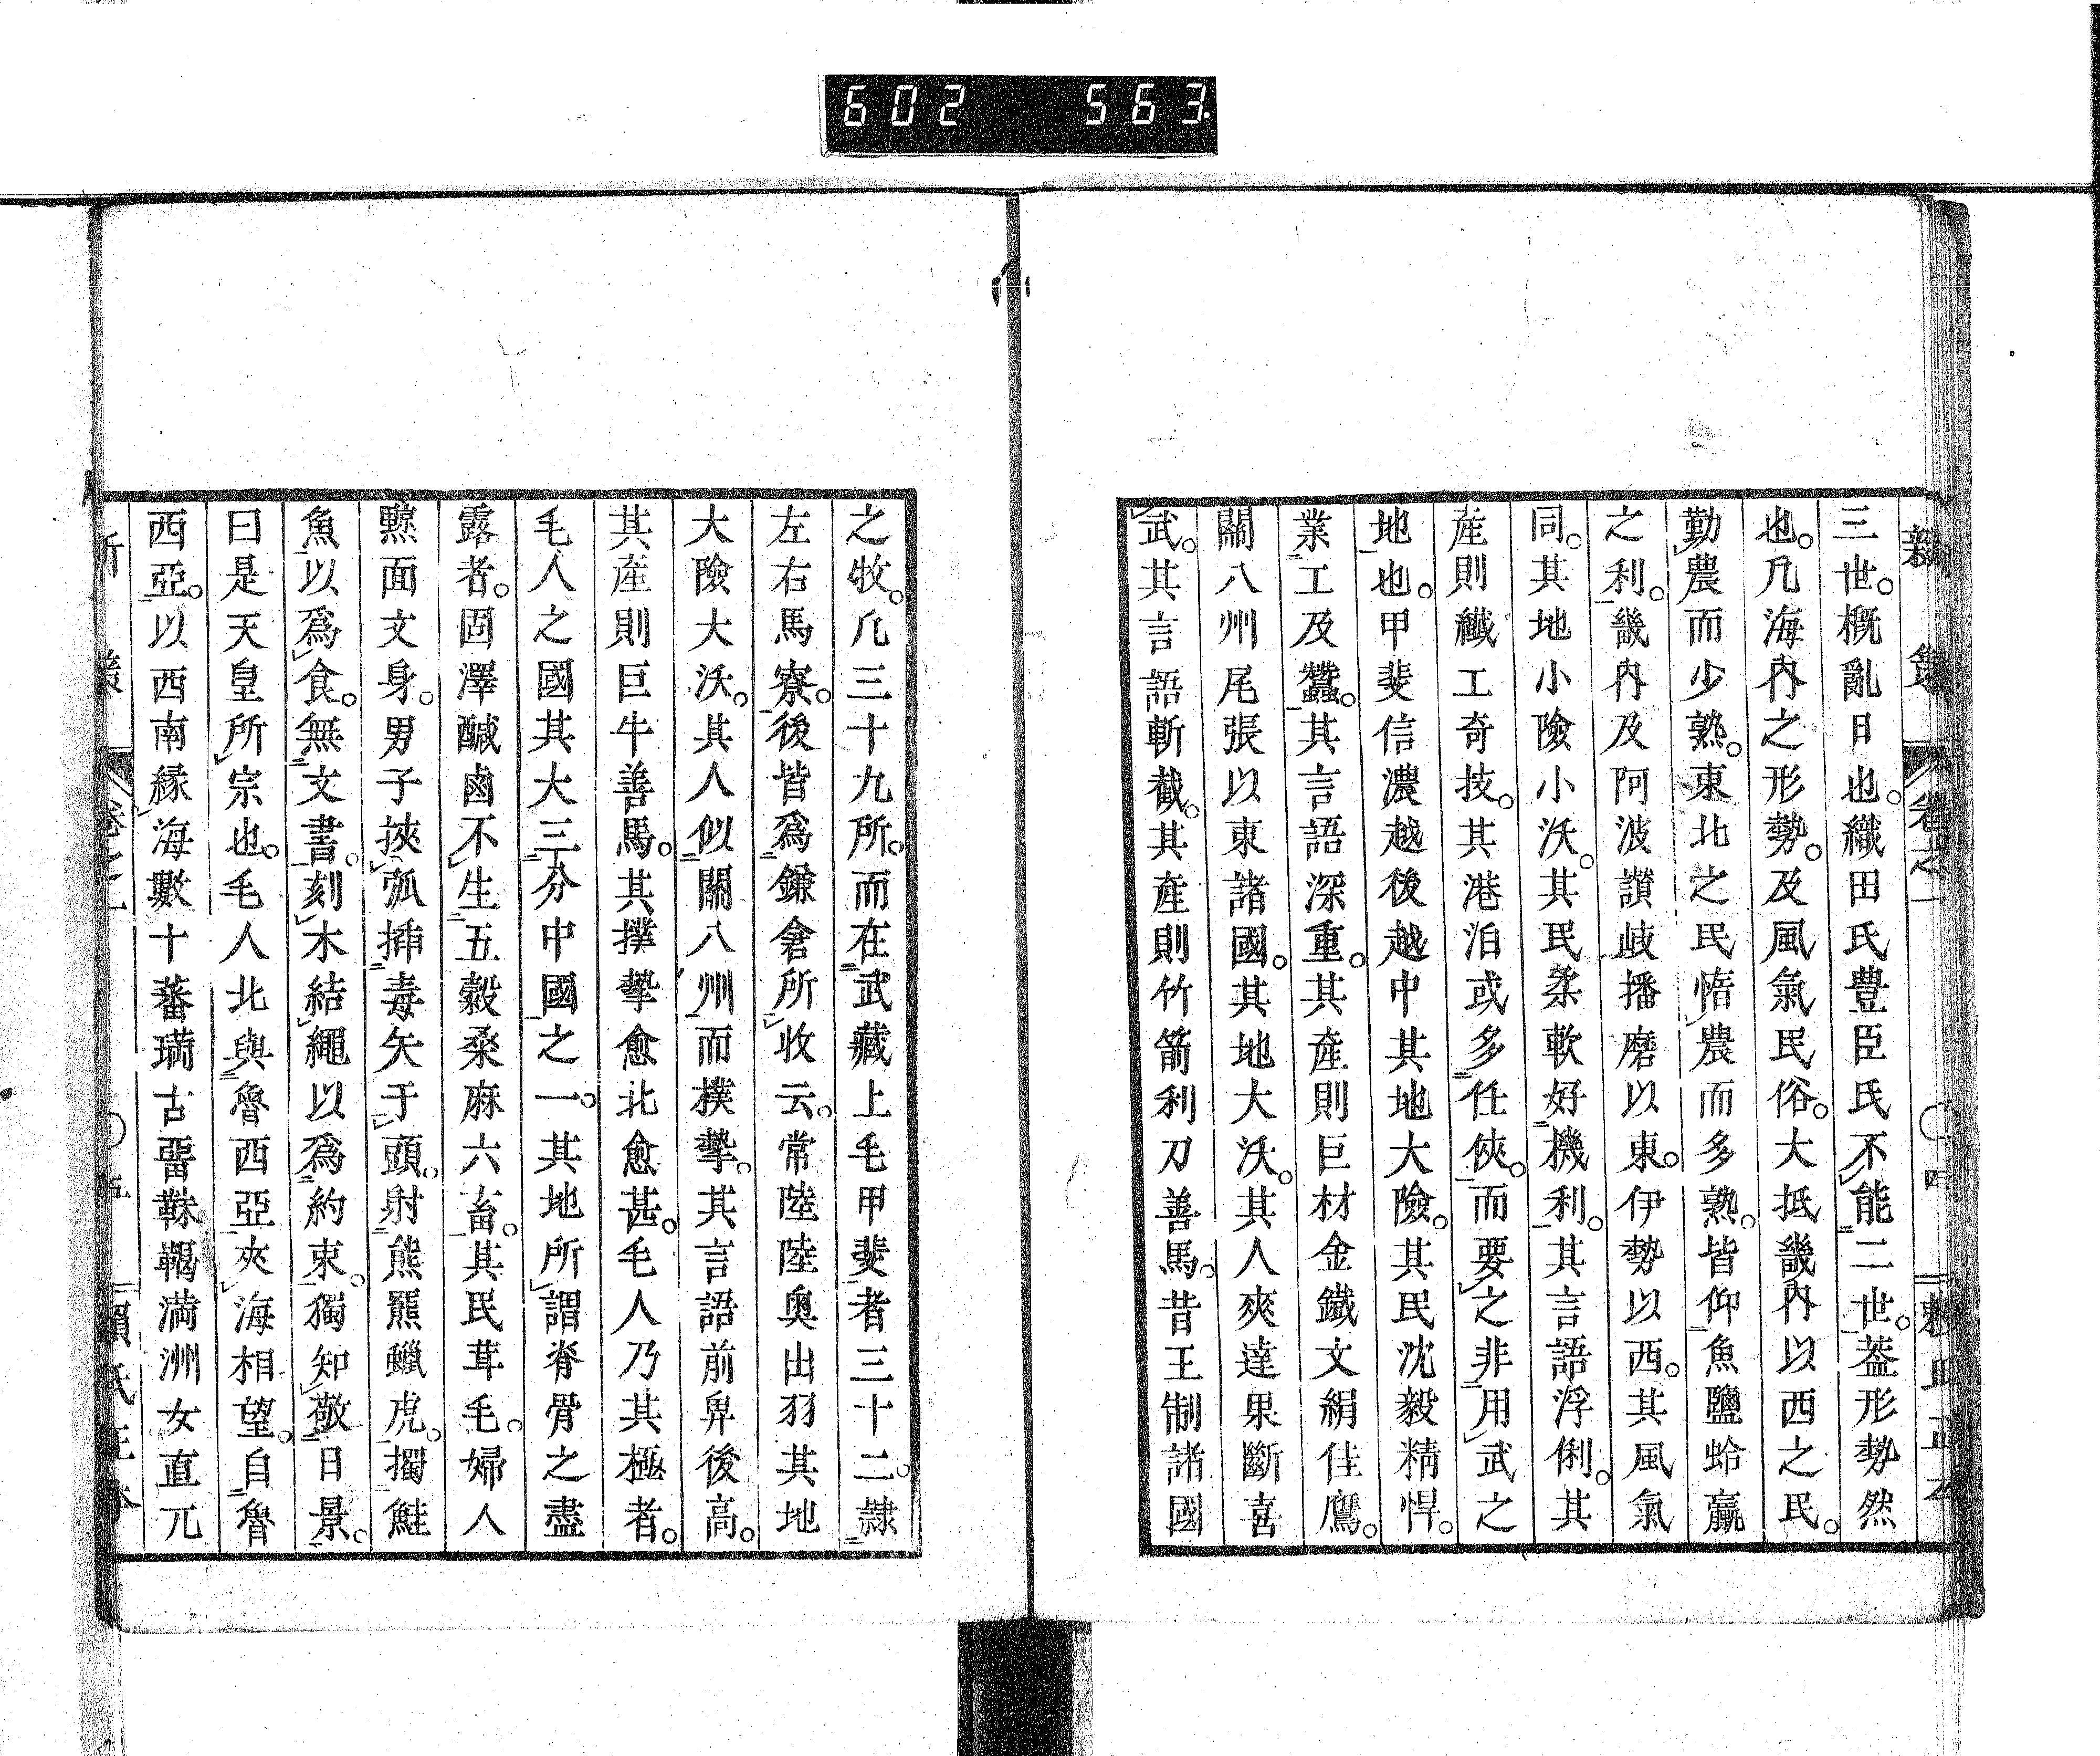 602 563.
新策 卷之一 〇四 賴氏正本
三世。概亂日也。織田氏豐臣氏不能二世。蓋形勢然
也。凡海內之形勢。及風氣民俗。大抵畿內以西之民。
勤農而少熟。東北之民惰農而多熟。皆仰魚鹽蛤蠃
之利。畿內及阿波讃岐播磨以東。伊勢以西。其風氣
同。其地小險小沃。其民柔軟好機利。其言語浮俐。其
產則纖工奇技。其港泊或多任俠。而要之非用武之
地也。甲斐信濃越後越中其地大險。其民沈毅精悍。
業工及蠶。其言語深重。其產則巨材金鐵文絹佳鷹。
關八州尾張以東諸國。其地大沃。其人爽達果斷喜
武。其言語斬截。其產則竹箭利刀善馬。昔王制諸國
之牧。凡三十九所。而在武藏上毛甲斐者三十二。隷
左右馬寮。後皆爲鎌倉所收云。常陸陸奧出羽其地
大險大沃。其人似關八州而樸鷙。其言語前卑後高。
其產則巨牛善馬。其撲鷙愈北愈甚。毛人乃其極者。
毛人之國其大三分中國之一。其地所謂脊骨之盡
露者。固澤鹹鹵不生五穀桑麻六畜。其民茸毛。婦人
黥面文身。男子挾弧揷毒矢于頭。射熊羆蠟虎。擉鮭
魚以爲食。無文書。刻木結繩以爲約束。獨知敬日景。
曰是天皇所宗也。毛人北與魯西亞夾海相望。自魯
西亞。以西南緣海數十蕃瑪古罾靺鞨滿洲女直兀
新策 卷之一 〇五 賴氏正本